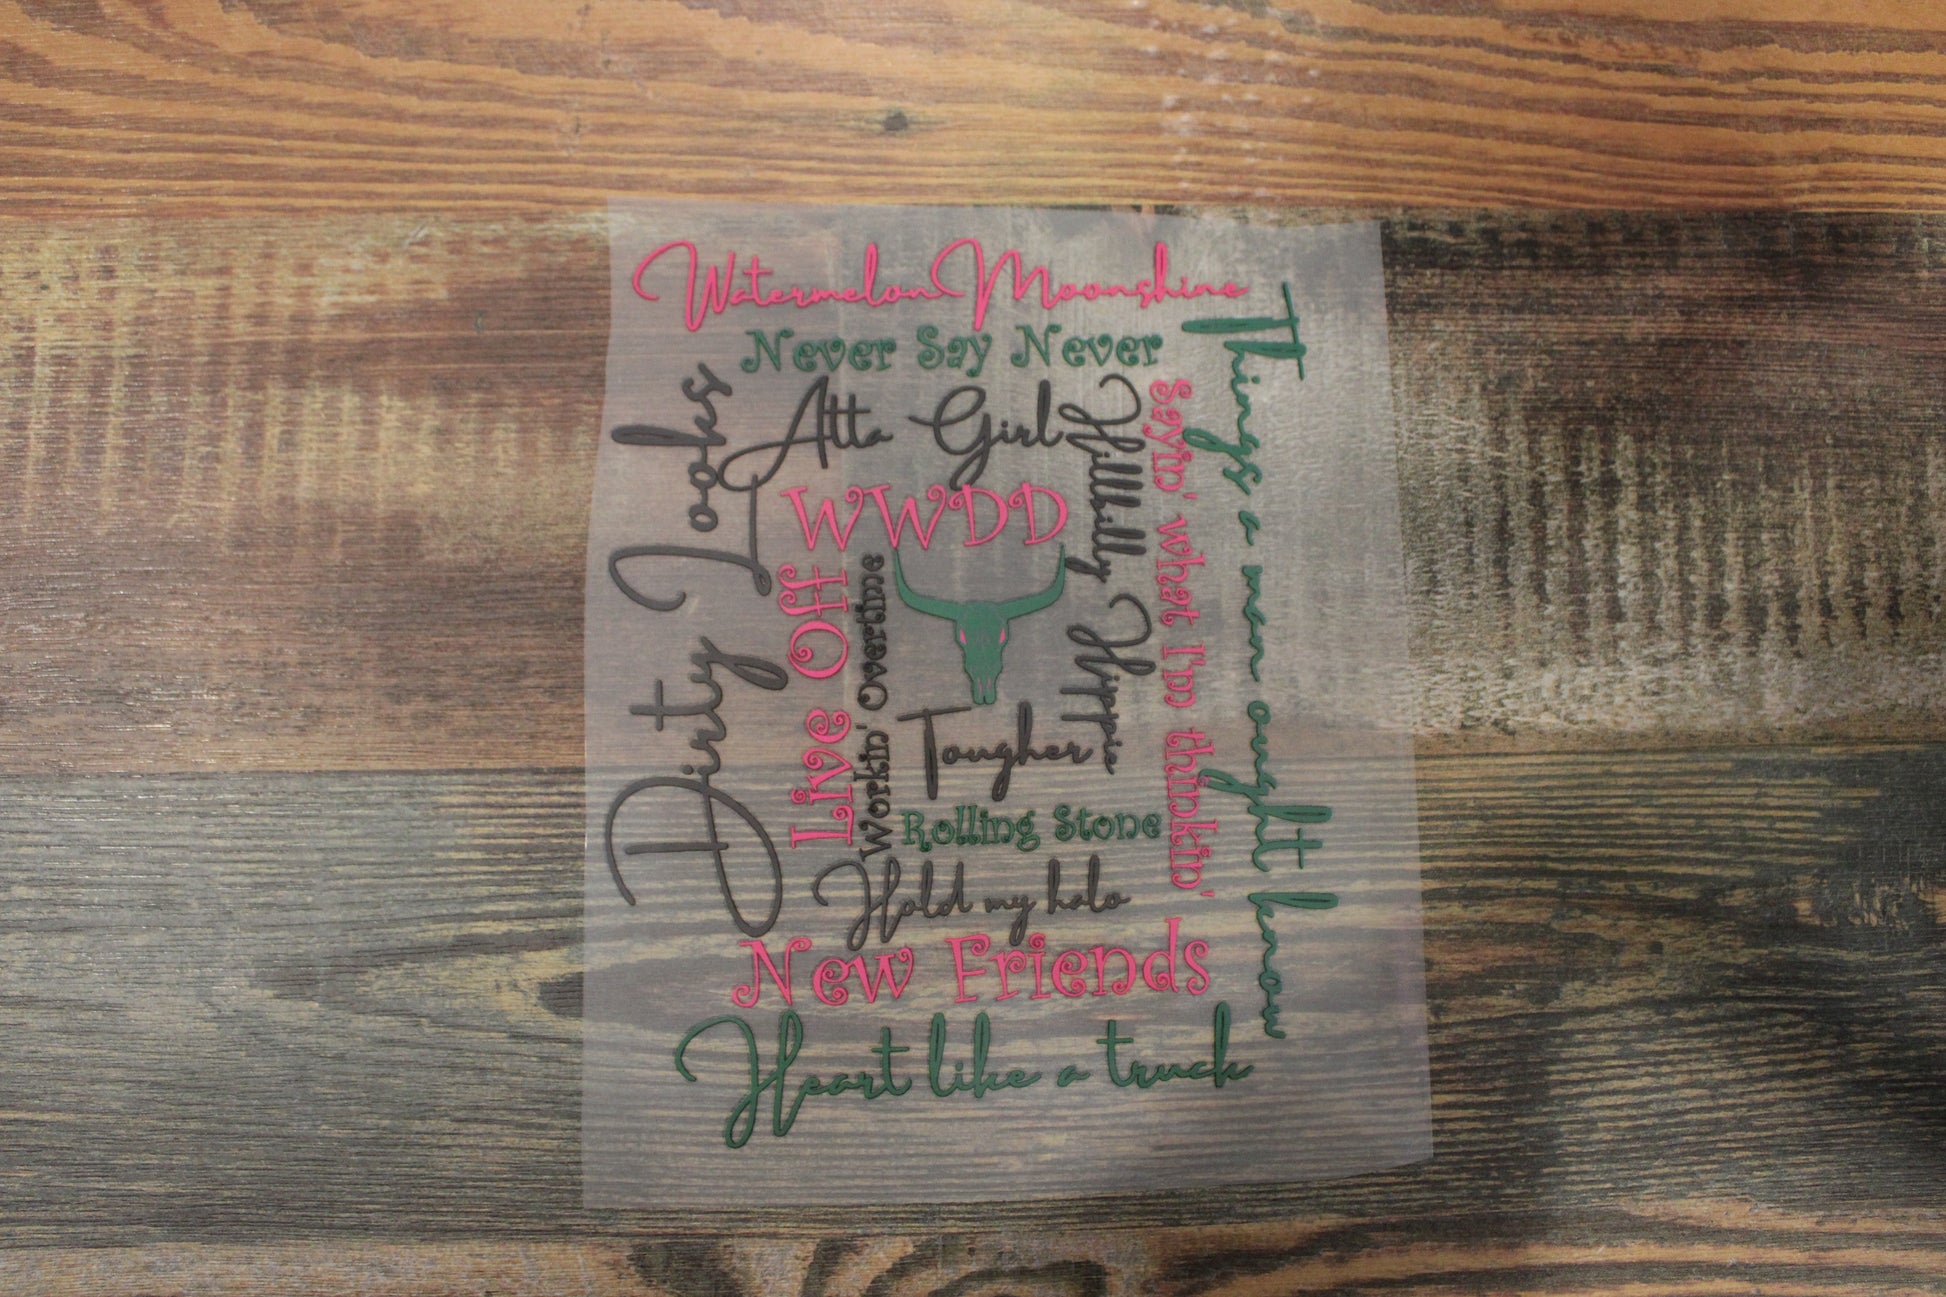 Watermelon Moonshine
Never Say Never
Things a man ought know
Dirty Looks
Atta Girl
Hillbilly Hippie
Sayin' what I'm thinkin'
WWDD
Live Off
Workin' Overtime
Tougher
Rolling Stone
Hold my halo
New Friends
Heart like a truck